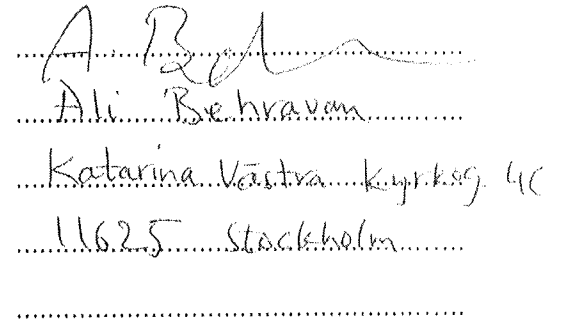 Ali Behravan
Katarina Västra Kyrkog. 4C
11625 Stockholm